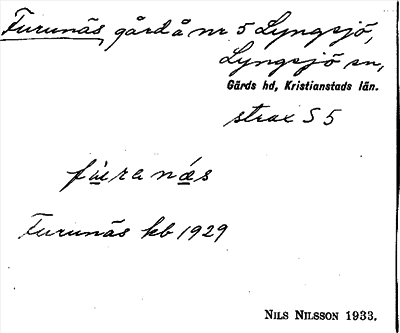 Furunäs, gård å nr 5 Lyngsjö,
Lyngsjö sn,
Gärds hd, Kristianstads län.
strax S 5
fùranǽs
Furunäs kb 1929
NILS NILSSON 1933.